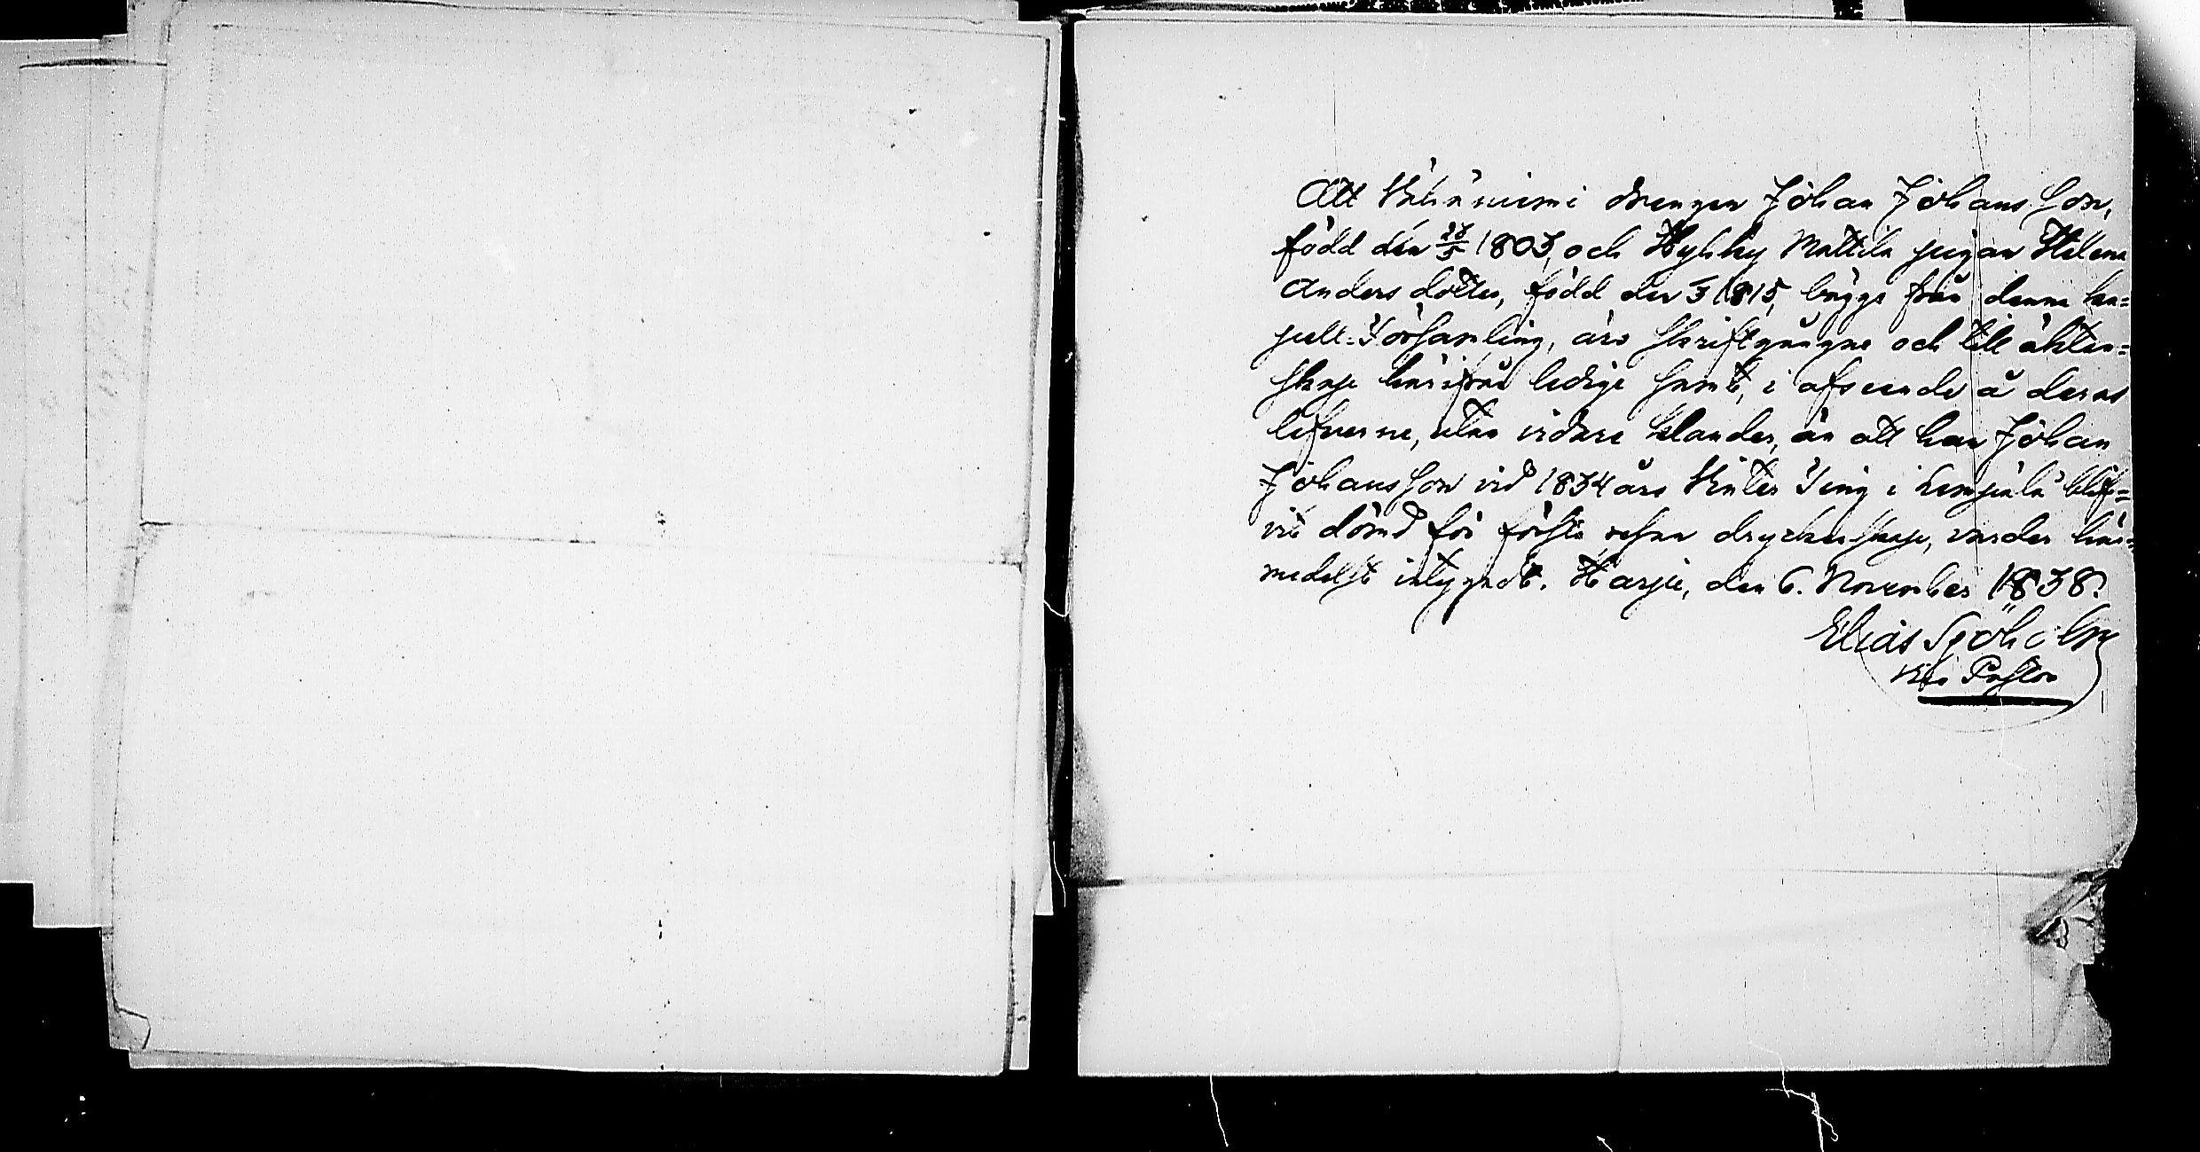 Att Vähäniemi drengen Johan Johansson,
född den 23/5 1803, och Hyhky Mattila pigan Helena
Anders dotter, född den 1815, bägge från denne ka=
pell-Församling, äro skriftgångne och till äkten=
skap härifrån ledige samt, i afseende å deras
lefverne, utan vidare klander, än att han Johan
Johansson vid 1834 års Vinter Ting i Lempälä blif=
vit dömd för första resan dryckenskap, varder här=
medelst intygadt. Harju, den 6. November 1838.
Elias
Vice Pastor